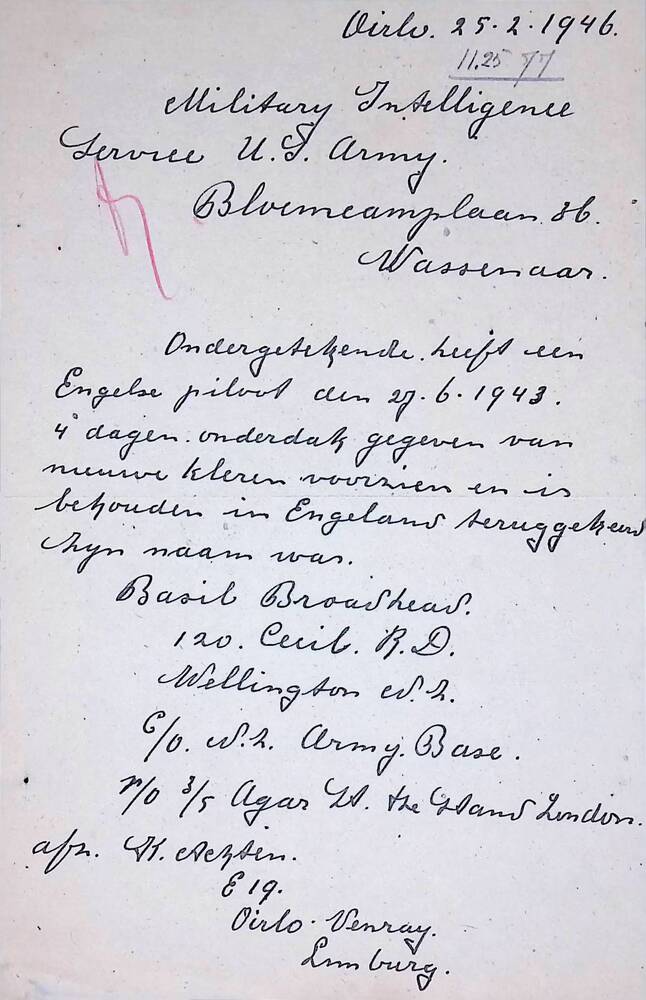 Oirlo. 25.2.1946.
11.25
Military Intelligence
Service U.S. Army.
Bloemcamplaan 36.
Wassenaar.
Ondergetekende heeft een
Engelse piloot den 27.6.1943.
4 dagen onderdak gegeven van
nieuwe kleren voorzien en is
behouden in Engeland teruggekeerd
zyn naam was.
Basil Broadhead.
120. Cecil. R.D.
Wellington N.Z.
C/O. N.Z. Army Base.
3/5 Agar St. the Strand London.
afz. K. Achten.
E 19.
Oirlo. Venray.
Limburg.